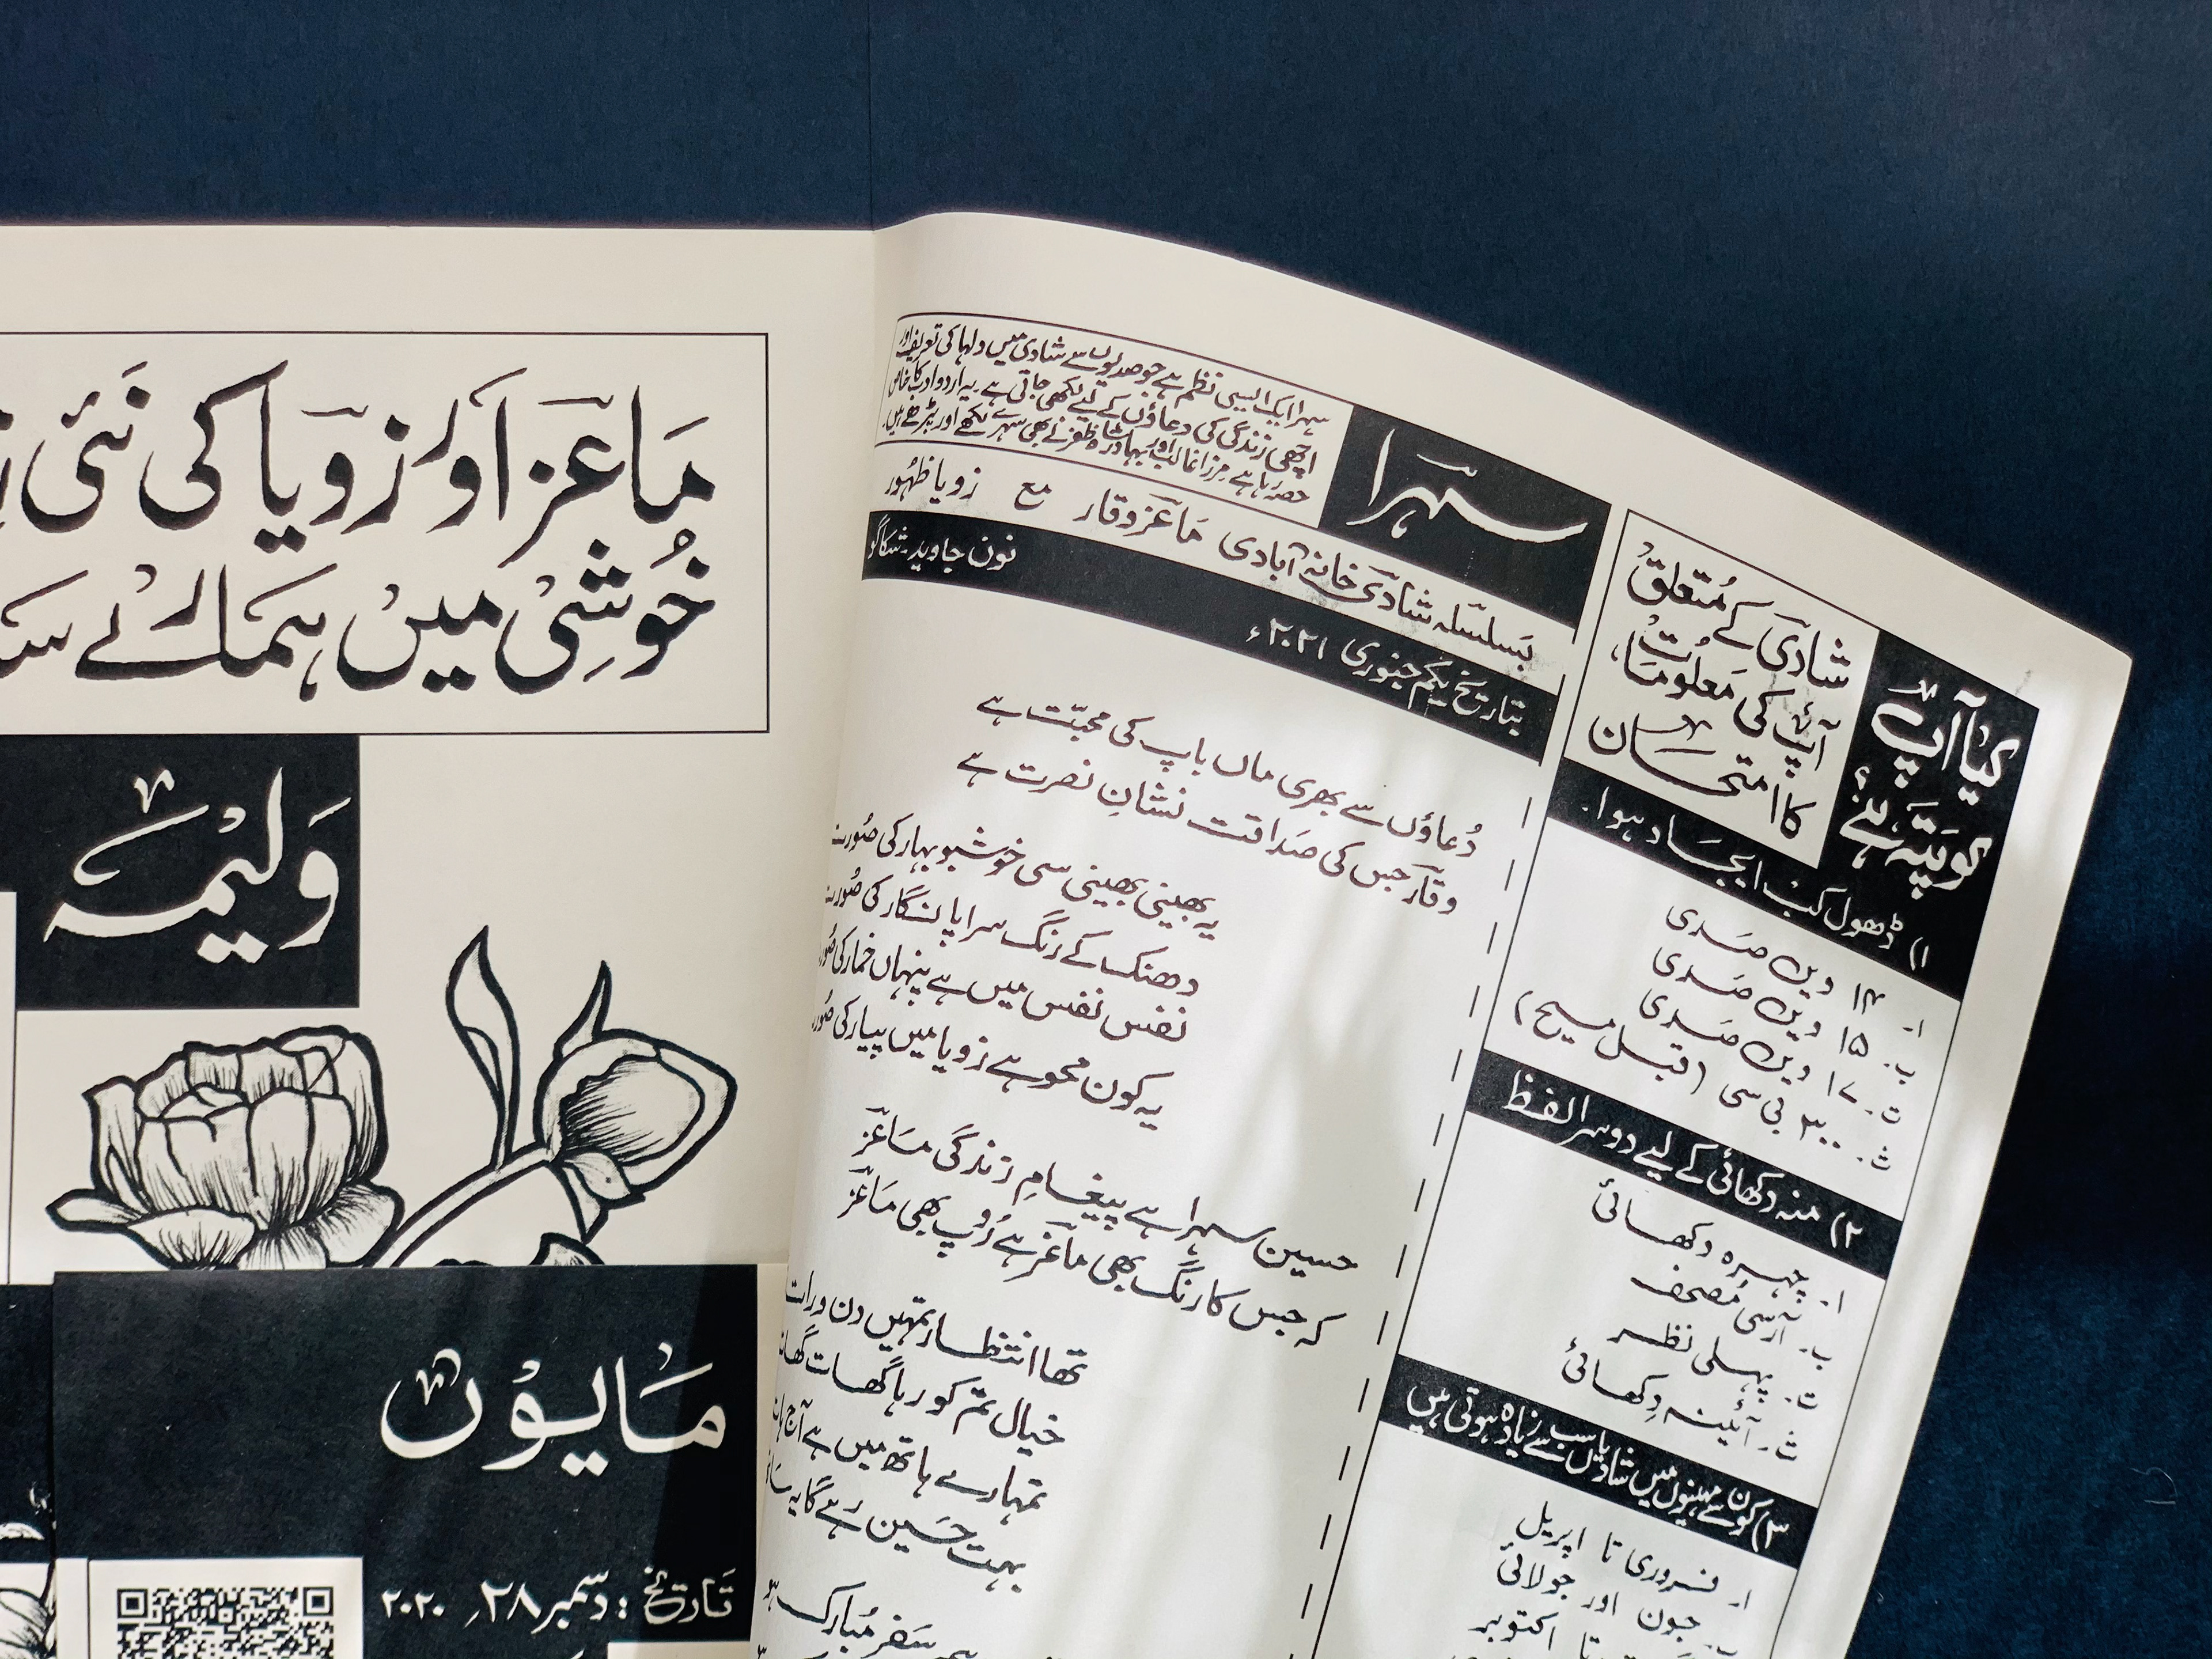 ماعز اور زویا کی نئی
خوشی میں ہمارے
ولیمہ
مایوں
تاریخ: دسمبر ۲۸، ۲۰۲۰
سہرا
سہرا ایک ایسی نظم ہے جو صدیوں سے شادی میں دلہا کی تعریف اور
اچھی زندگی کی دعاؤں کے لیے لکھی جاتی ہے۔ یہ اردو ادب کا خاص
حصہ رہا ہے مرزا غالب اور بہادر شاہ ظفر نے بھی سہرے لکھے اور پڑھے ہیں۔
بسلسلہ شادی خانہ آبادی ماعز وقار مع زویا ظہور
بتاریخ یکم جنوری ۲۰۲۱ء
نون جاوید۔ شکاگو
دُعاؤں سے بھری ماں باپ کی محبّت ہے
وقار جس کی صداقت نشانِ نصرت ہے
یہ بھینی بھینی سی خوشبو بہار کی صُورت
دھنک کے رنگ سراپا نگار کی صُورت
نفس نفس میں ہے پنہاں خمار کی
یہ کون محو ہے زویا میں پیار کی
حسین سہرا ہے پیغامِ زندگی ماعز
کہ جس کا رنگ بھی ماعز ہے رُوپ بھی ماعز
تھا انتظار تمہیں دن و رات
خیال تم کو رہا گھات
تمہارے ہاتھ میں ہے آج
بہت حسین رہے گا یہ
سفر مُبارک ہو
کیا آپ
کو پتہ ہے؟
شادی کے مُتعلق
آپ کی معلومات
کا امتحان
۱) ڈھول کب ایجاد ہوا۔
ا۔ ۱۴ ویں صدی
ب۔ ۱۵ ویں صدی
ت۔ ۱۷ ویں صدی
ث۔ ۳۰۰ بی سی (قبل مسیح)
۲) منہ دکھائی کے لیے دوسرا لفظ
ا۔ چہرہ دکھائی
ب۔ آرسی مُصحف
ت۔ پہلی نظر
ث۔ آئینہ دِکھائی
۳) کون سے مہینوں میں شادیاں سب سے زیادہ ہوتی ہیں
ا۔ فروری تا اپریل
ب۔ جون اور جولائی
تا اکتوبر